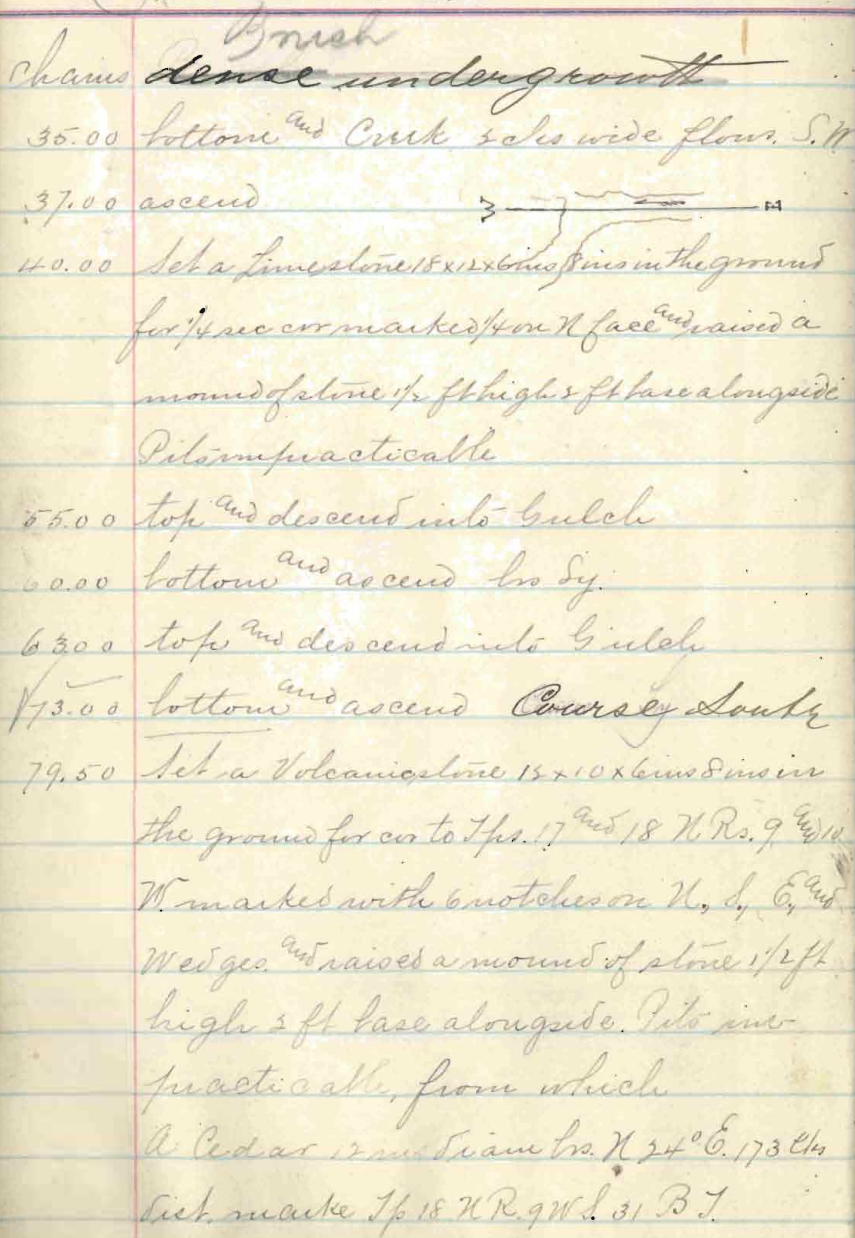 Brush
Chains dense undergrowth
35.00 bottom and Creek 2 chs wide flows. S.W
37.00 ascend W E
40.00 Set a Limestone 18x12x6 ins 8 ins in the ground
for 1/4 sec cor marked 1/4 on N face and raised a
mound of stone 1 1/2 ft high 2 ft base alongside
Pits impracticable
55.00 top and descend into Gulch
60.00 bottom and ascend brs Sy.
63.00 top and descend into Gulch
73.00 bottom and ascend Course South
79.50 Set a Volcanic stone 12x10x6 ins 8 ins in
the ground for cor to Tps. 17 and 18 N Rs. 9 and 10
W. marked with 6 notches on N., S., E., and
W edges. and raised a mound of stone 1 1/2 ft
high 2 ft base alongside. Pits im-
practicable, from which
A Cedar 12 ins diam brs. N 24° E. 173 lks
dist. marke Tp 18 N R. 9 W S. 31 B T.